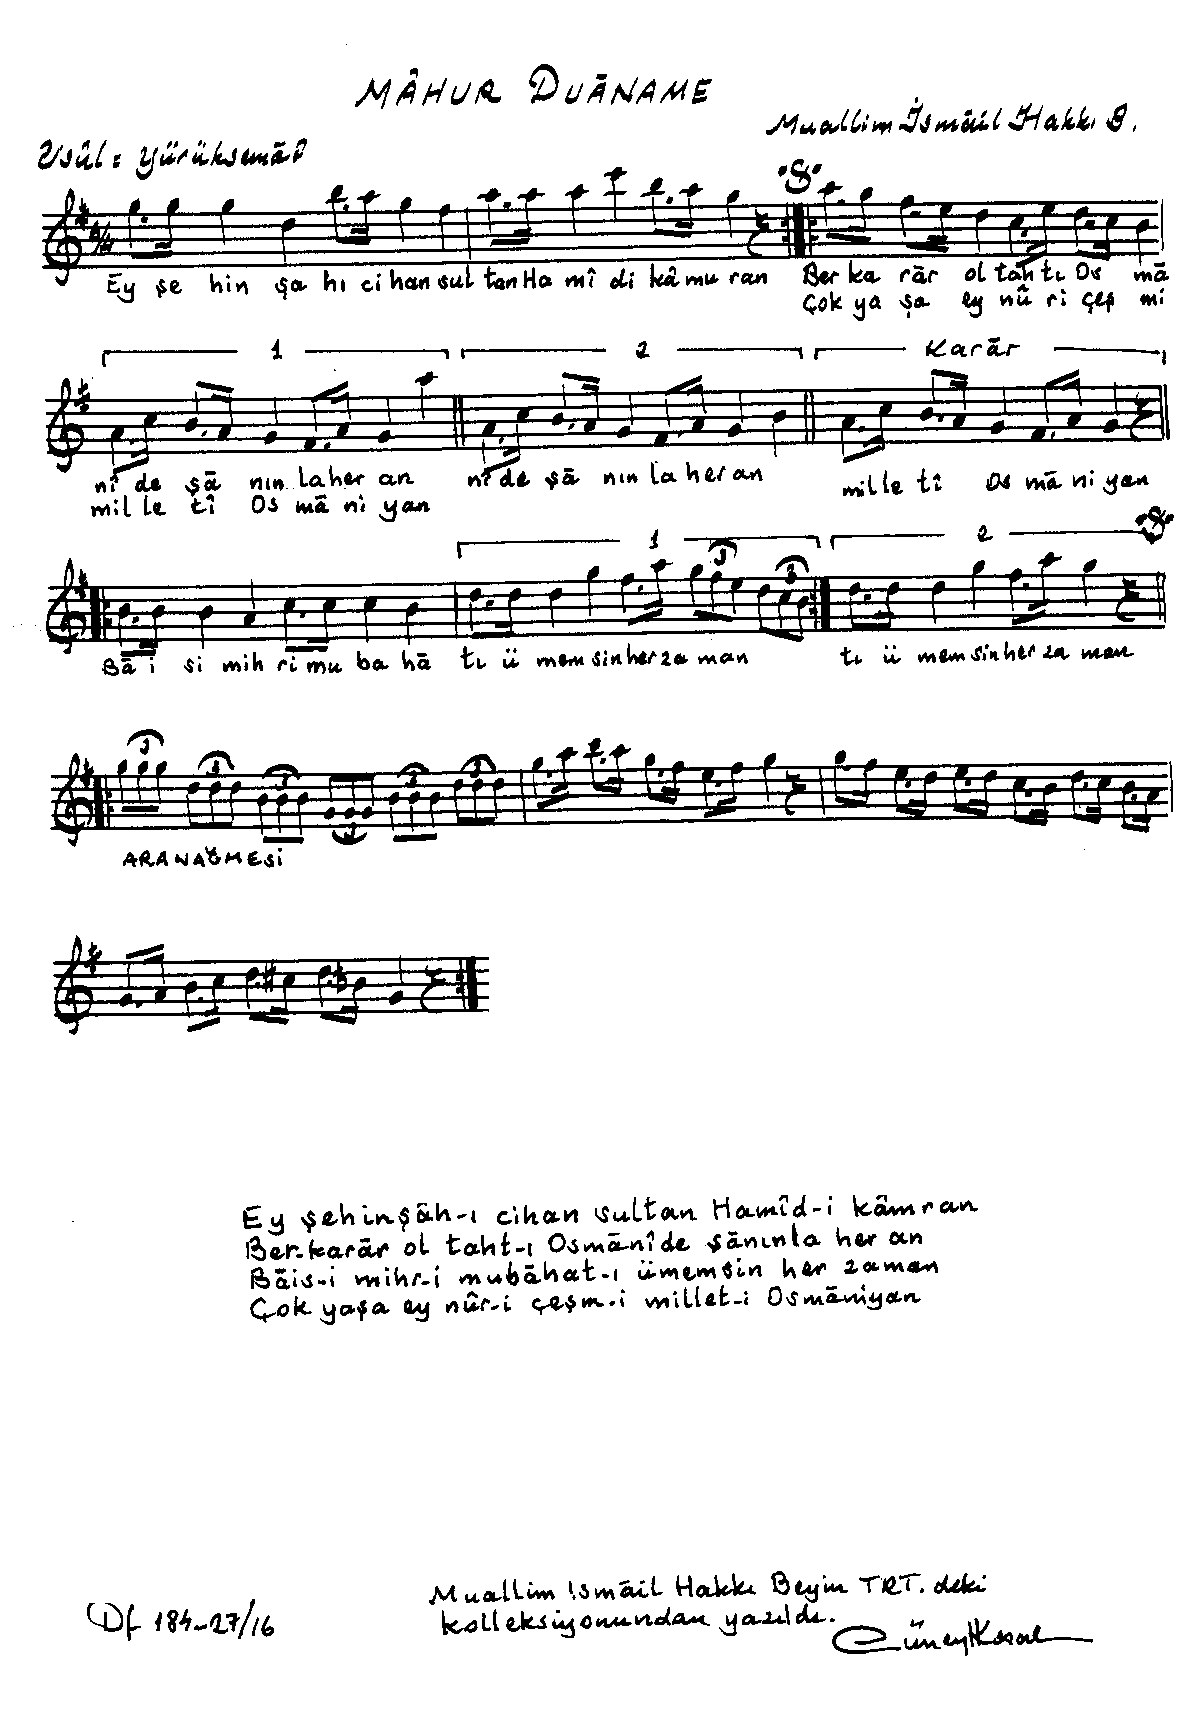 MÂHUR DUÂNAME
Muallim İsmâil Hakkı B.
Usûl = Yürüksemâî
Ey şe hin şa hı ci han sul tan Ha mî di kâ mu ran Ber ka râr ol tah tı Os mâ
Çok ya şa ey nû ri çeş mi
1 2 Karâr
nî de şâ nın la her an nî de şâ nın la her an mil le tî Os mâ ni yan
mil le tî Os mâ ni yan
1 2
3 3
Bâ i si mih ri mu ba hâ tı ü mem sin her za man tı ü mem sin her za man
3 3 3 3 3 3
ARANAĞMESİ
Ey şehinşâh-ı cihan sultan Hamîd-i kâmran
Ber-karâr ol taht-ı Osmânîde şânınla her an
Bâis-i mihr-i mubâhat-ı ümemsin her zaman
Çok yaşa ey nûr-i çeşm-i millet-i Osmâniyan
Muallim İsmâil Hakkı Beyin TRT. deki
kolleksiyonundan yazıldı.
Df 184-27/16
Cüneyt Kosal